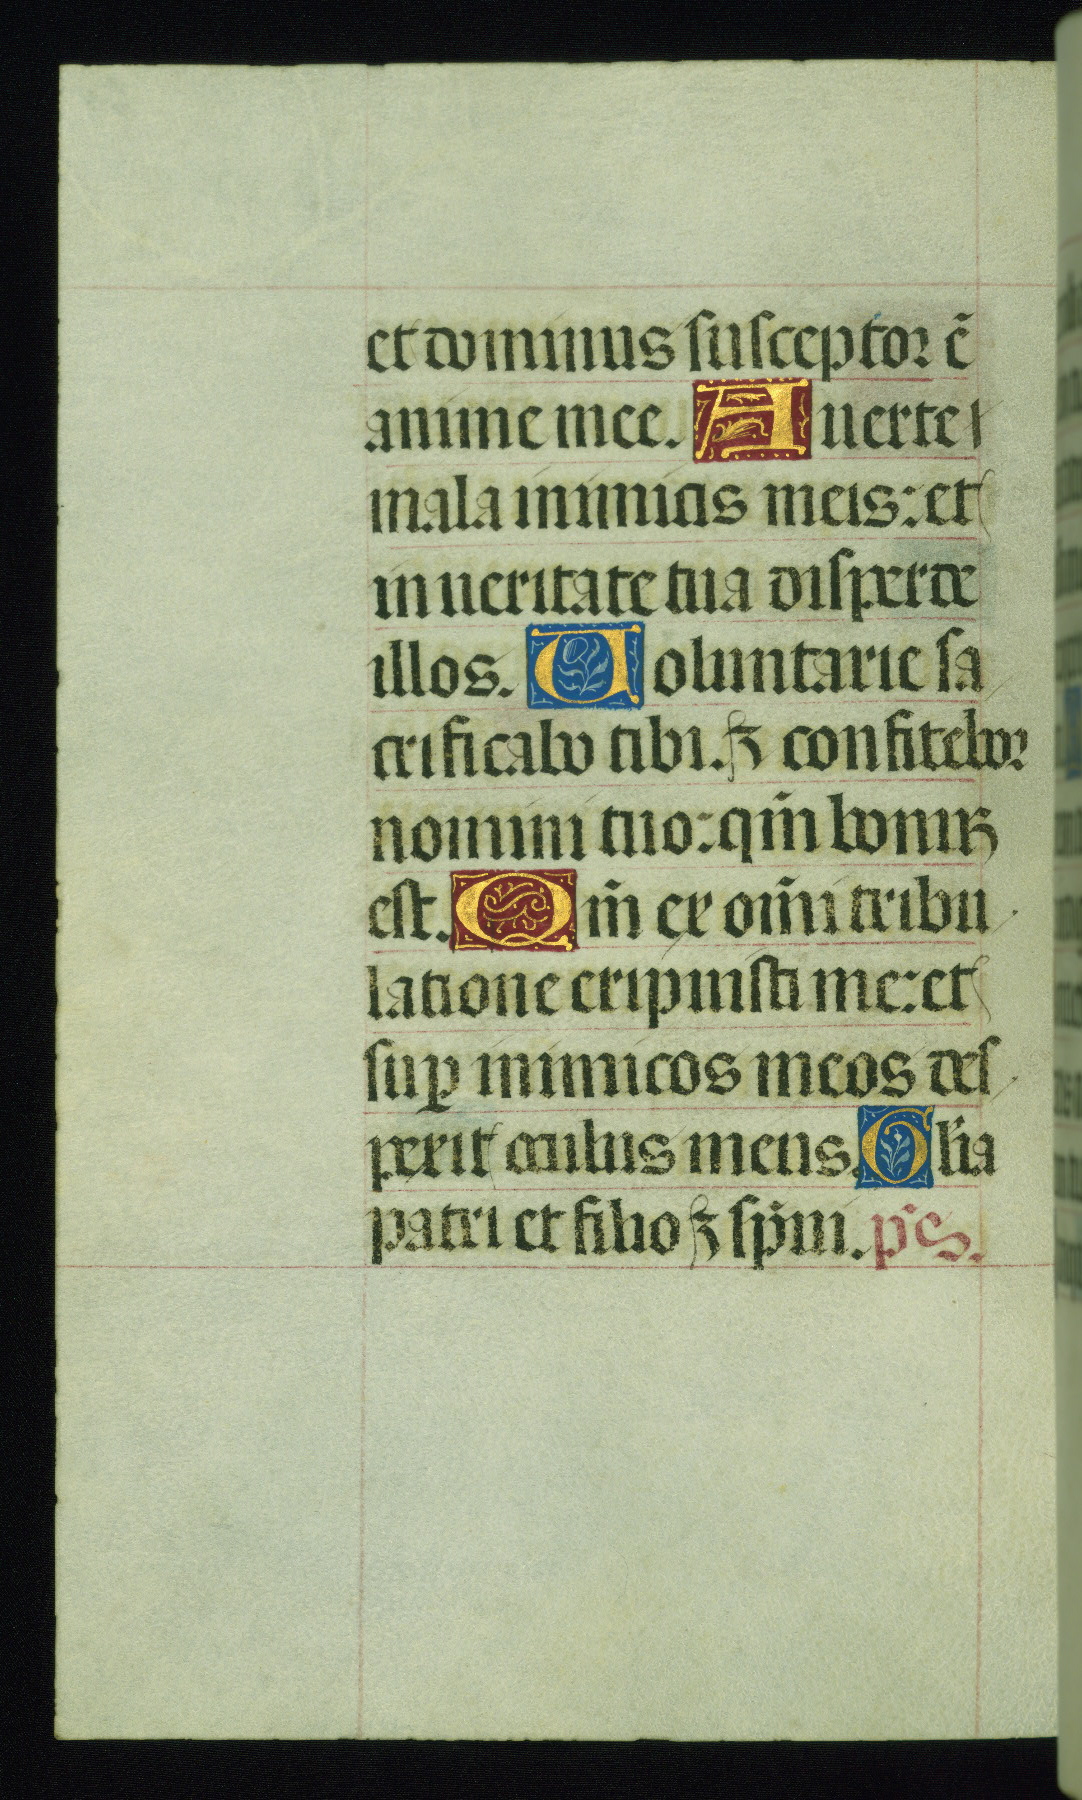 et dominus susceptor ē
anime mee. Auerte
mala inimicis meis: et
in ueritate tua disperde
illos. Uoluntarie sa
crificabo tibi. ⁊ confitebor
nomini tuo: qm̄ bonuꝫ
est. Qm̄ ex om̄i tribu
latione eripuisti me: et
suꝑ inimicos meos des
perit oculus meus. Gl̄ia
patri et filio ⁊ sp̄ui. p̄s.